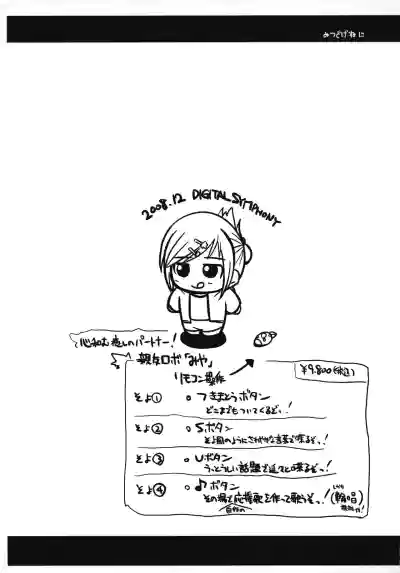 みつどげねに
2008.12 DIGITAL SYMPHONY
心和む癒しのパートナー!
親友ロボ「みや」
リモコン製作
¥9.800(税込)
その① つきまとうボタン
どこまでもついてくるぞっ!
その② Sボタン
そよ風のようにさわやかな言葉で喋るぞっ!
その③ Uボタン
うっとうしい話題で延々と喋るぞっ!
その④ ♪ボタン
その場で応援歌を作って歌うぞっ!(輪唱
自作の